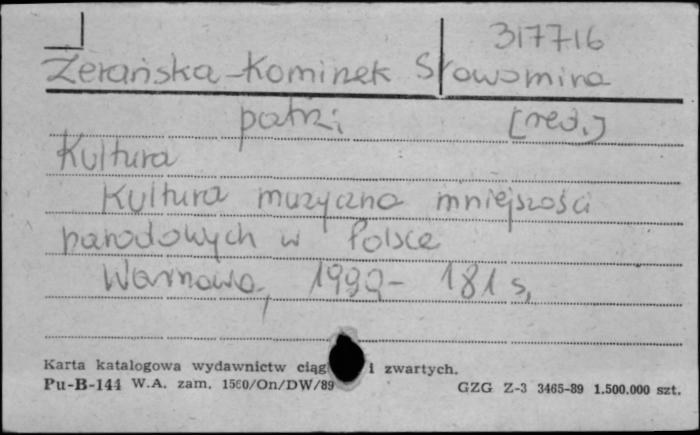 317716
Żerańska-Kominek Sławomira
patrz: [red.]
Kultura
Kultura muzyczna mniejszości
narodowych w Polsce
Warszawa, 1990- 181 s,
Karta katalogowa wydawnictw ciąg i zwartych.
Pu-B-144 W.A. zam. 1560/On/DW/89 GZG Z-3 3465-89 1.500.000 szt.